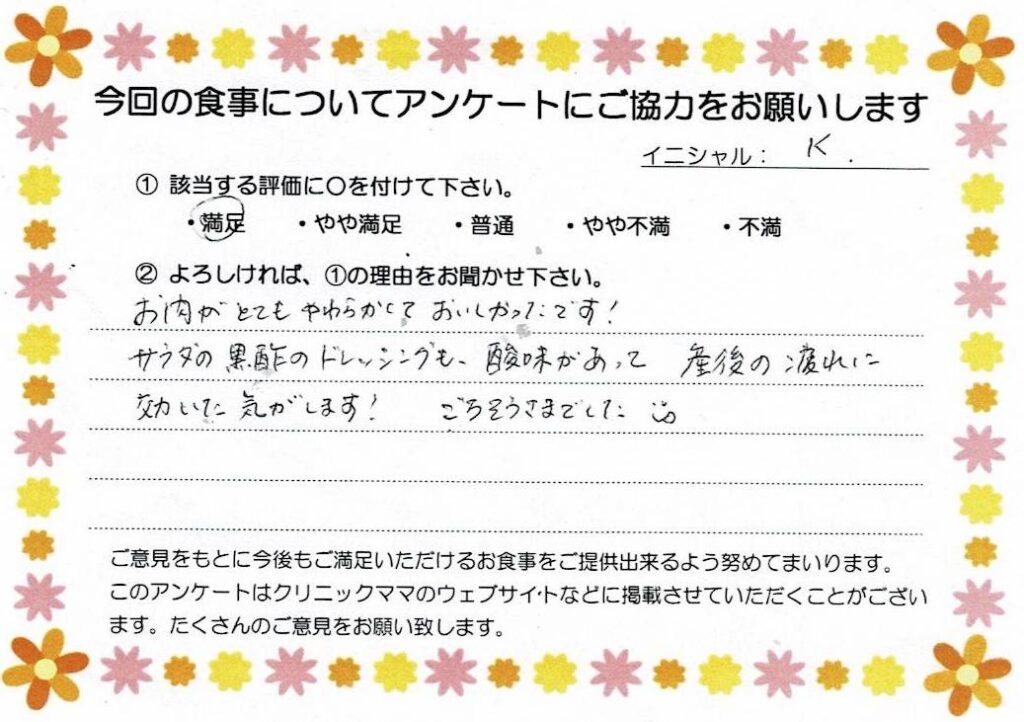 今回の食事についてアンケートにご協力をお願いします
イニシャル： K .
① 該当する評価に〇を付けて下さい。
・満足 ・やや満足 ・普通 ・やや不満 ・不満
② よろしければ、①の理由をお聞かせ下さい。
お肉がとてもやわらかくて おいしかったです！
サラダの黒酢のドレッシングも、酸味があって 産後の疲れに
効いた気がします！ ごちそうさまでした
ご意見をもとに今後もご満足いただけるお食事をご提供出来るよう努めてまいります。
このアンケートはクリニックママのウェブサイトなどに掲載させていただくことがござい
ます。たくさんのご意見をお願い致します。